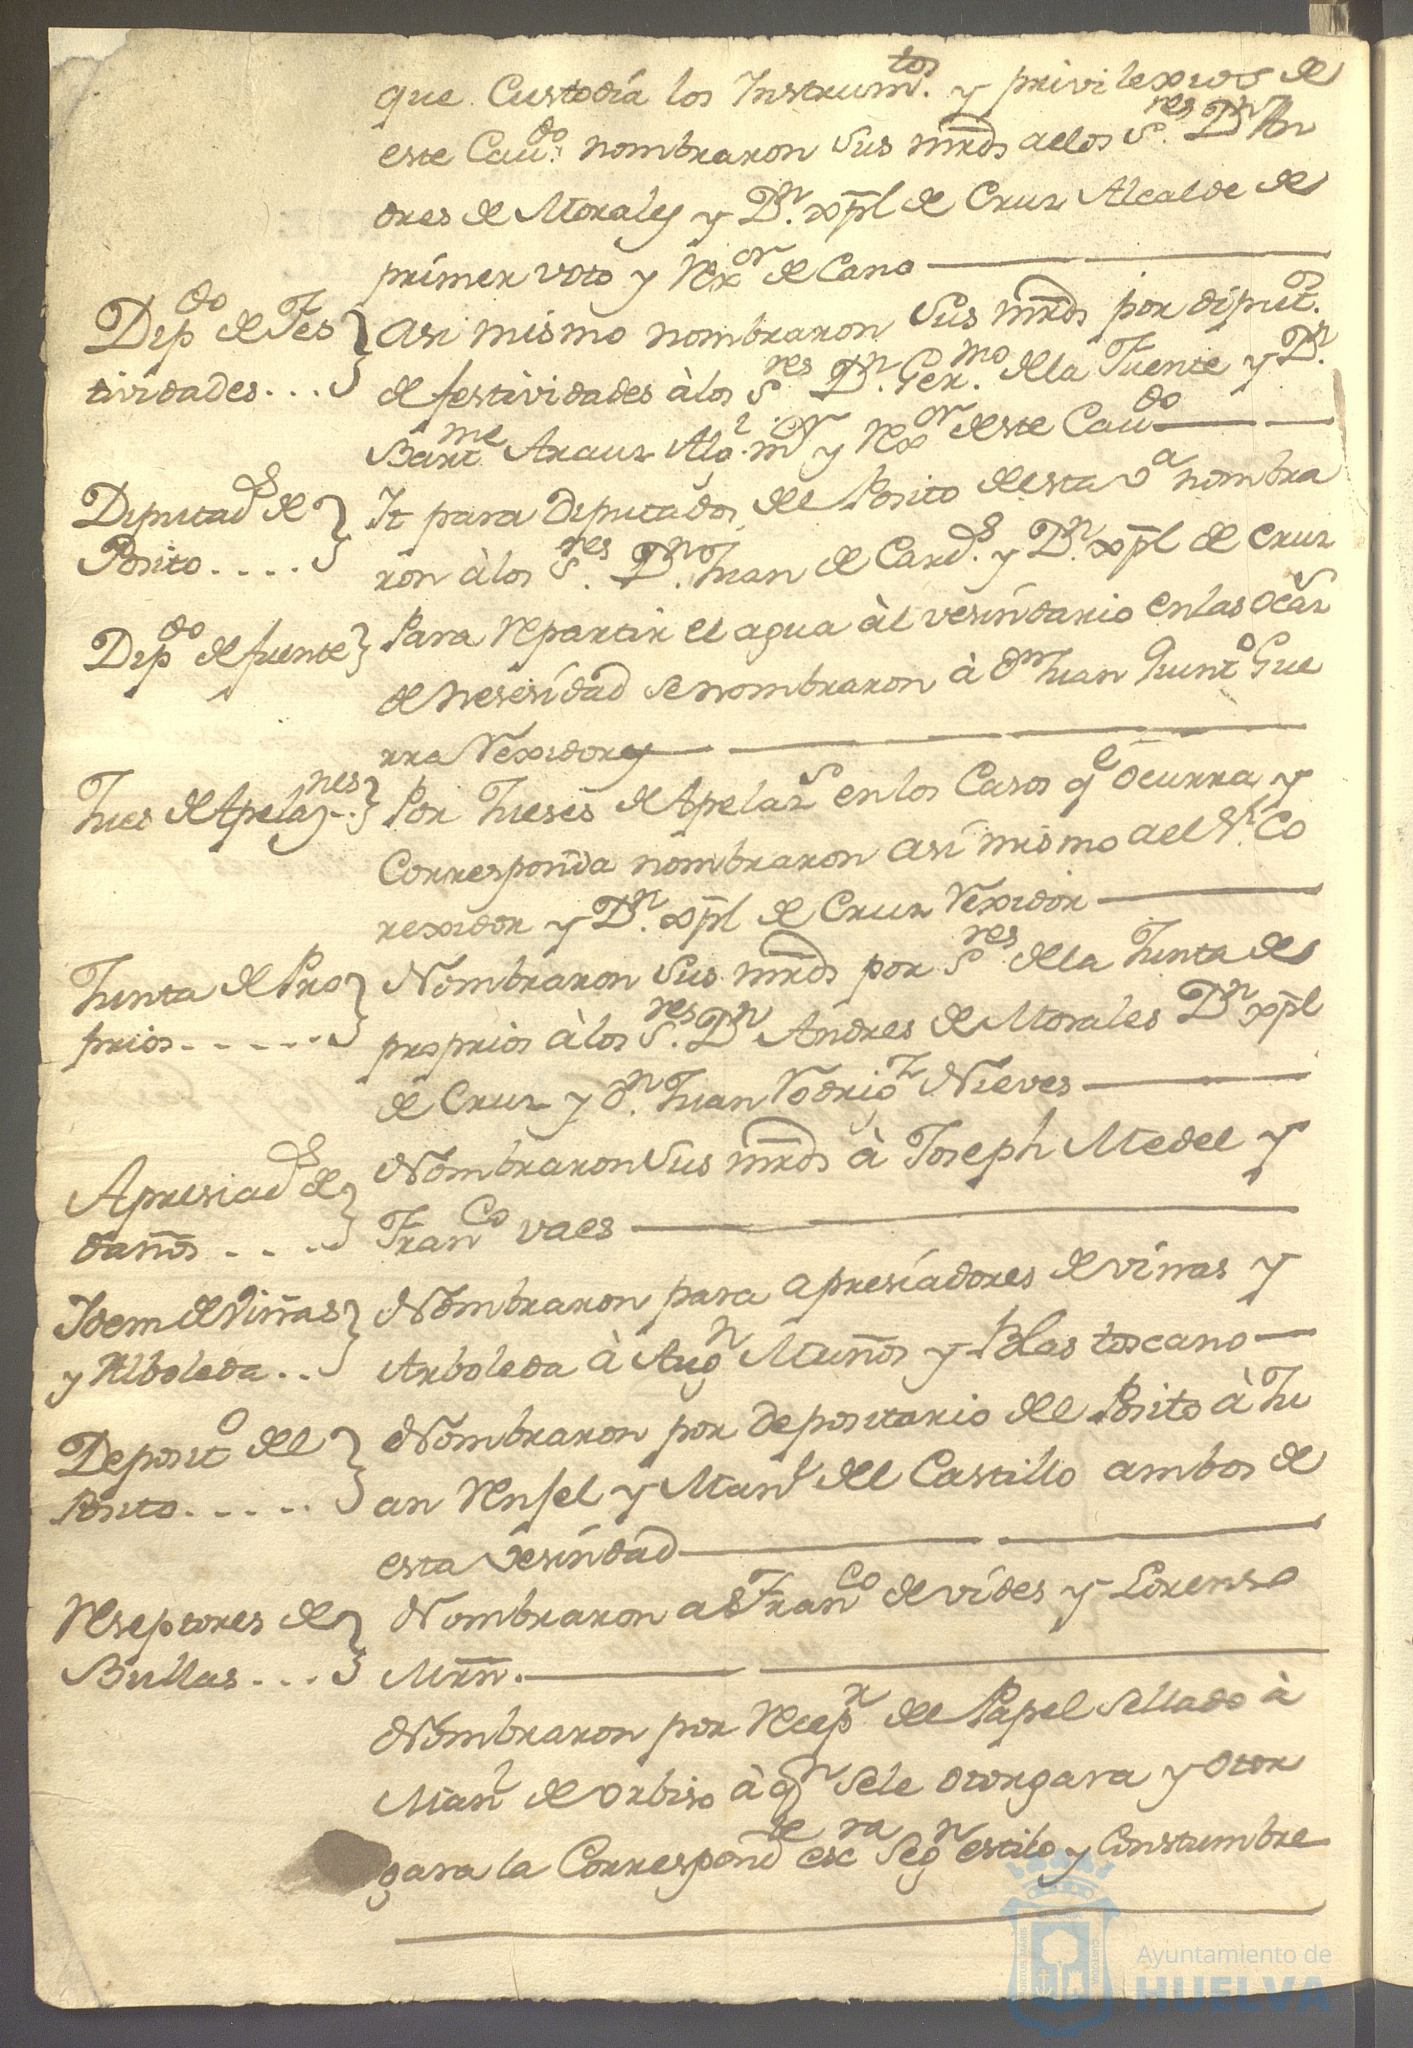 que Custodia los Instrum.tos y privilexios de
este Cau.do nombraron Sus mrds a los S.res Dn An
dres de Morales y D.n xpl de Cruz Alcalde de
primer voto y Rex.or de Cano
Dip.do de Fes
tividades...
asi mismo nombraron Sus mrds por diput.o
de festividades à los S.res D.n Ger.mo de la Fuente y D.n
Bart.me Arauz Alg.l m.or y Rex.or de este Cau.do
Diputad.s de
Posito....
It para diputados del Posito de esta v.a nombra
ron à los S.res D.n Juan de Card.s y D.n xpl de Cruz
Dip.do de fuente
Para repartir el agua àl vesindario en las
de nesesidad se nombraron à D.n Juan Quint.o Gue
rra Rexidores
Jues de Apelaz.nes..
Por Jueses de Apelaz.s en los Casos q.e ocurra y
Corresponda nombraron asi mismo a el S.r Co
rexidor y D.n xpl de Cruz Rexidor
Junta de Pro
prios......
Nombraron Sus mrds por S.res de la Junta de
proprios à los S.res D.n Andres de Morales D.n xpl
de Cruz y D.n Juan Rodrig.z Nieves
Apresiad.s de
daños....
Nombraron Sus mrds à Joseph Medel y
Fran.co vaes
Idem de Viñas
y Alboleda..
Nombraron para apresiadores de viñas y
Arboleda à Aug.n Muños y Blas toscano
Deposit.o del
Posito.....
Nombraron por depositario del Posito à Ju
an Rensel y Man.l del Castillo ambos de
esta Vesindad
Reseptores de
Bullas...
Nombraron a Fran.co de vides y Lorenso
Mrñ.
Nombraron por Recep.r del Papel Sellado à
Man.l de Orbiso à q.n Se le otorgara y otor
gara la Correspond.te esc.ra Seg.n estilo y Constumbre
Ayuntamiento de
HUELVA